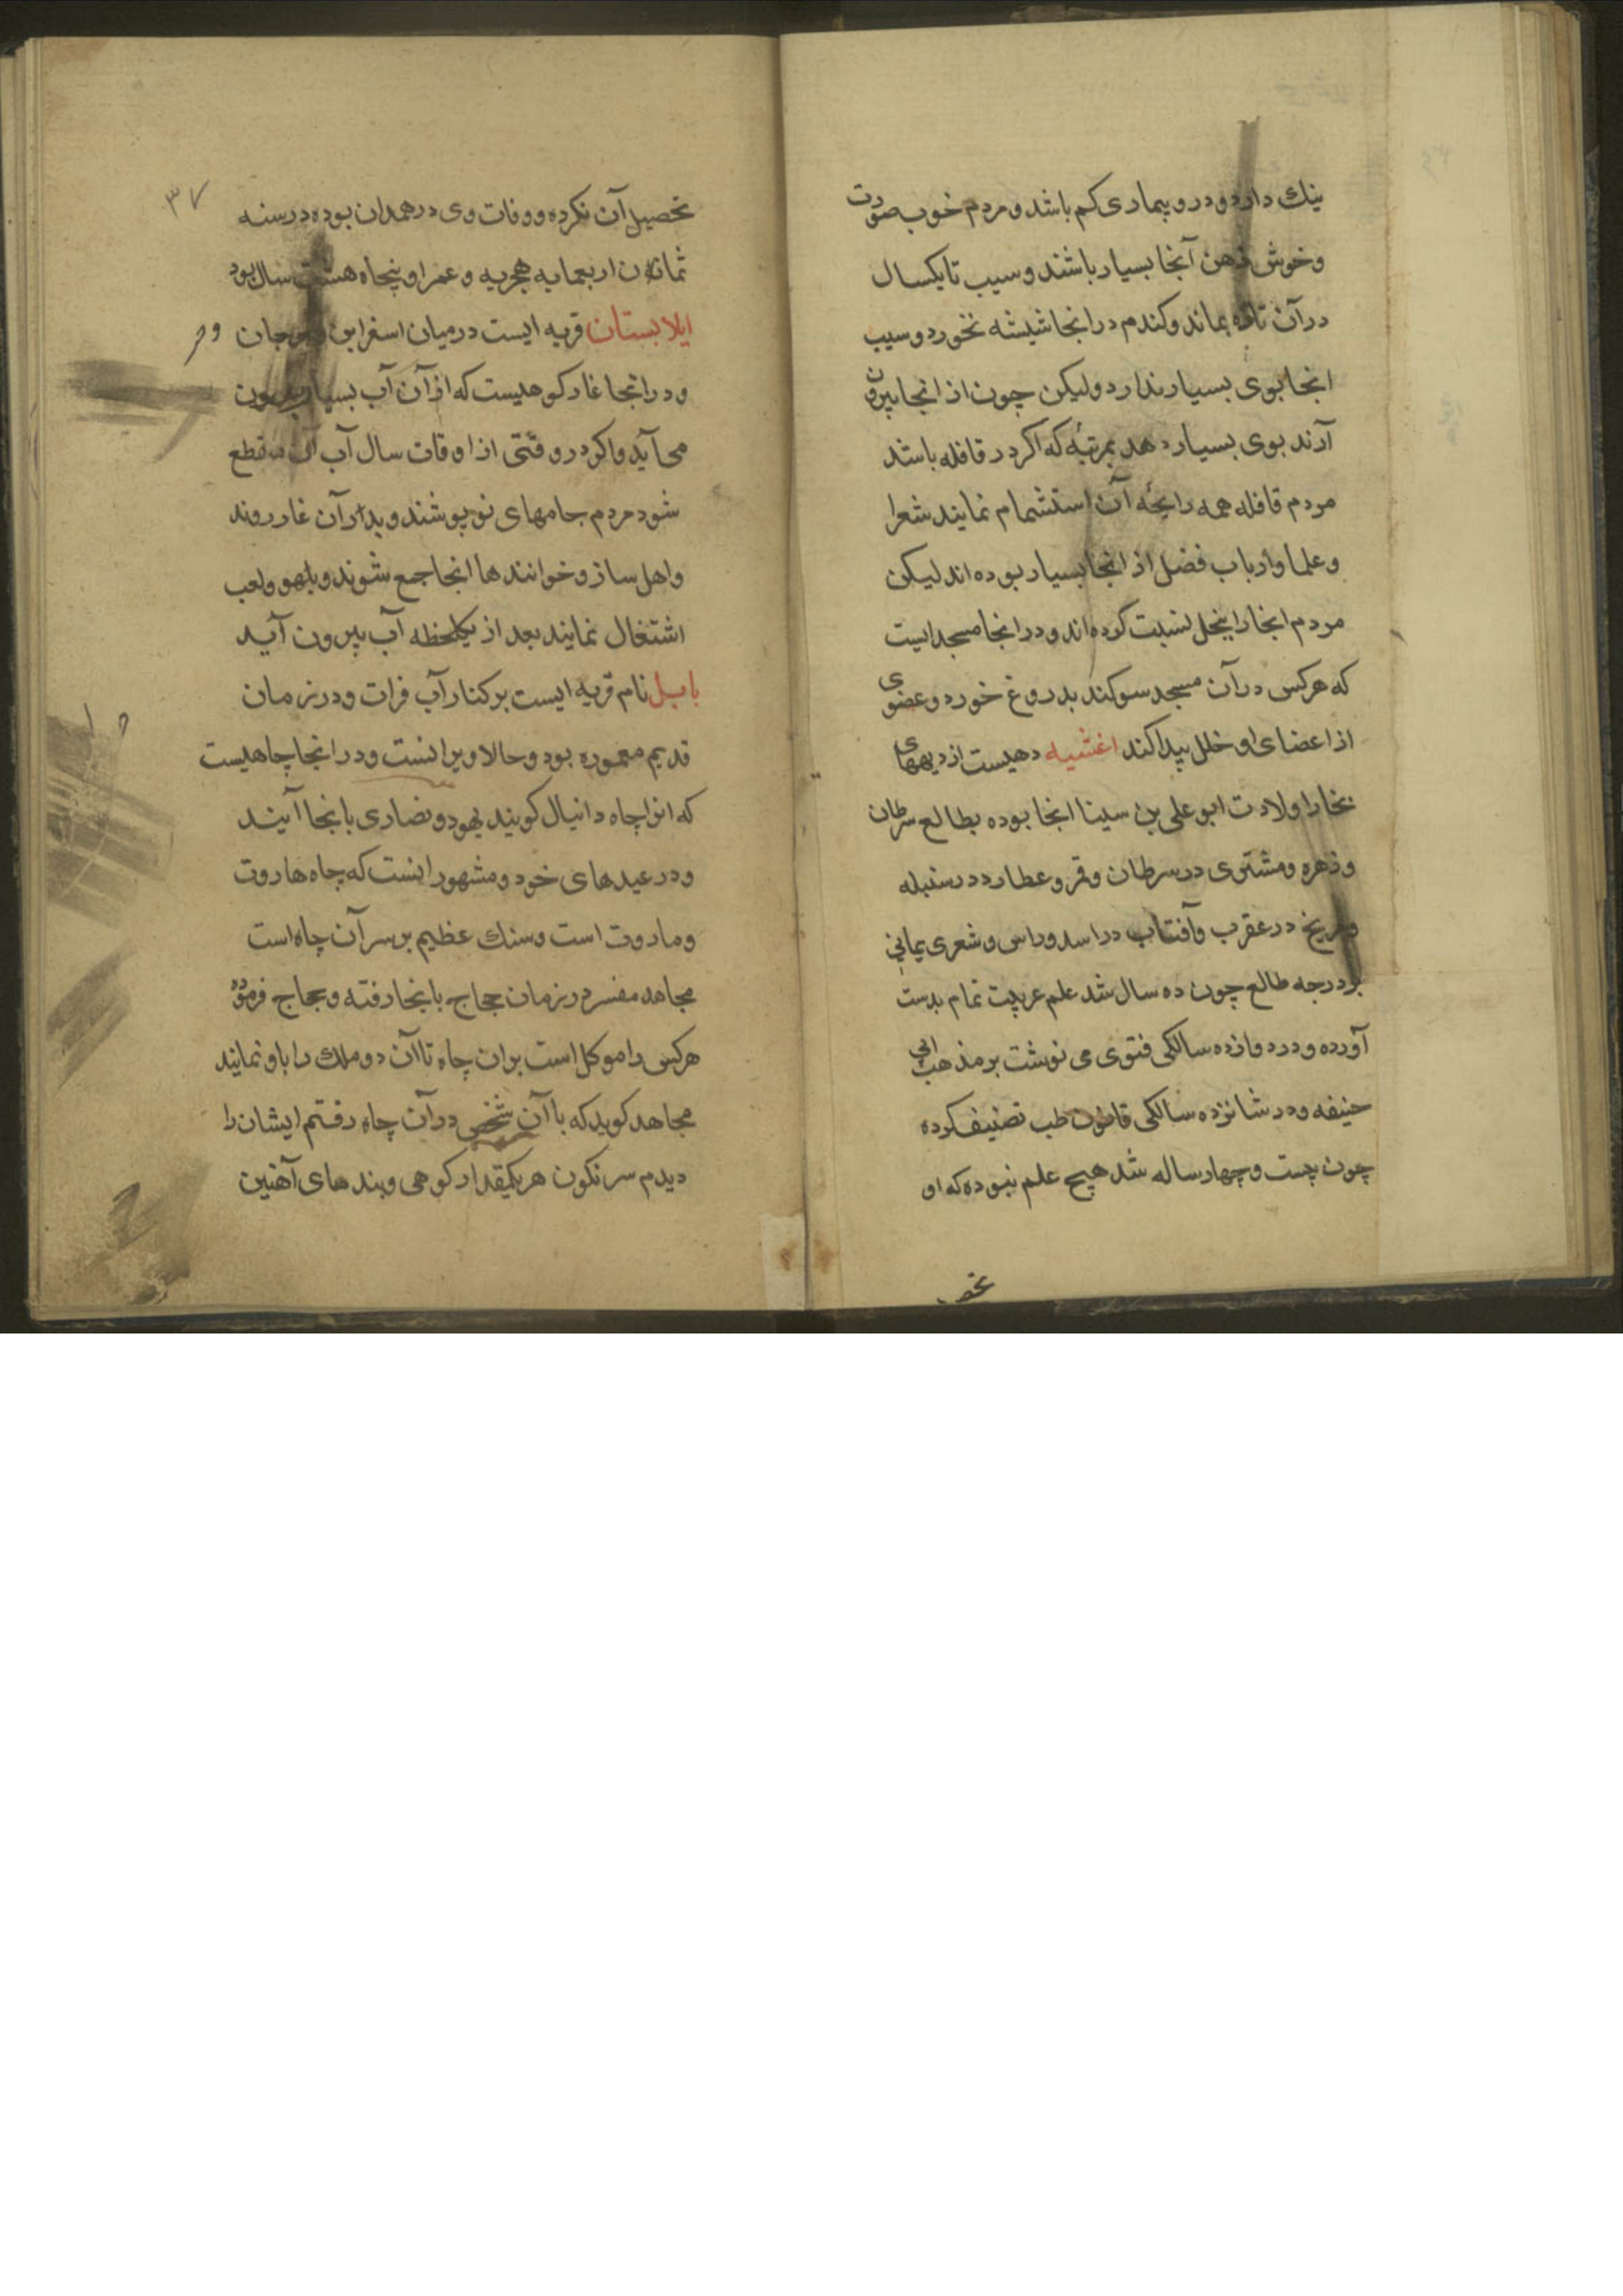 نیك دارد و درو بیماری کم باشد و مردم خوب صورت
و خوش ذهن آنجا بسیار باشند و سیب تا یکسال
در آن تازه بماند و کندم در انجا شیشه نخورد و سیب
انجا بوی بسیار ندارد و لیکن چون از انجا بیرون
آرند بوی بسیار دهد بمرتبۀ که اکر در قافله باشد
مردم قافله همه رایحۀ آن استشمام نمایند شعرا
و علما و ارباب فضل از انجا بسیار بوده اند لیکن
مردم انجا را ببخل نسبت کرده اند و در انجا مسجد ایست
که هرکس در آن مسجد سوکند بدروغ خورد و عضوی
از اعضای او خلل پیدا کند اغشیه دهیست از دیههای
بخارا ولادت ابو علی بن سینا انجا بوده بطالع سرطان
و زهره و مشتری در سرطان و قمر و عطارد در سنبله
و مریخ در عقرب و آفتاب در اسد و راس و شعری یمانی
بر درجه طالع چون ده سال شد علم عربیت تمام بدست
آورده و در دوازده سالکی فتوی می نوشت بر مذهب ابی
حنیفه و در شانزده سالکی قانون طب تصنیف کرده
چون بیست و چهار ساله شد هیچ علم نبوده که او
تحصیل
۳۷
تحصیل آن نکرده و وفات وی در همدان بوده در سنه
ثمان و اربعمایه هجریه و عمر او پنجاه هشت سال بود
ایلابستان قریه ایست در میان اسفراین و جرجان
و در انجا غار کوهیست که از آن آب بسیار بیرون
می آید و اکر در وقتی از اوقات سال آب آن منقطع
شود مردم جامهای نو پوشند و بدر آن غار روند
و اهل ساز و خوانندها انجا جمع شوند و بلهو و لعب
اشتغال نمایند بعد از یکلحظه آب بیرون آید
بابل نام قریه ایست بر کنار آب فرات و در زمان
قدیم معموره بود و حالا ویرانست و در انجا چاهیست
که انرا چاه دانیال کویند یهود و نصاری بانجا آیند
و در عیدهای خود و مشهور انست که چاه هاروت
و ماروت است و سنك عظیم بر سر آن چاه است
مجاهد مفسر در زمان حجاج باینجا رفته و حجاج فرموده
هرکس را موکل است بران چاه تا آن دو ملك را باو نمایند
مجاهد کوید که با آن شخص در آن چاه رفتم ایشان را
دیدم سرنکون هر یکمقدار کوهی و بندهای آهنین